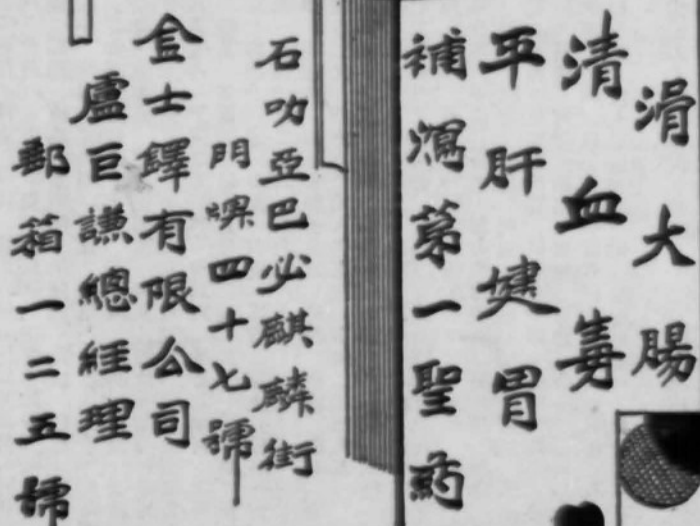 滑大腸
清血毒
平肝健胃
補瀉第一聖药
石叻亞巴必麒麟街
門牌四十七號
金士鐸有限公司
盧巨謙總經理
郵箱一二五號